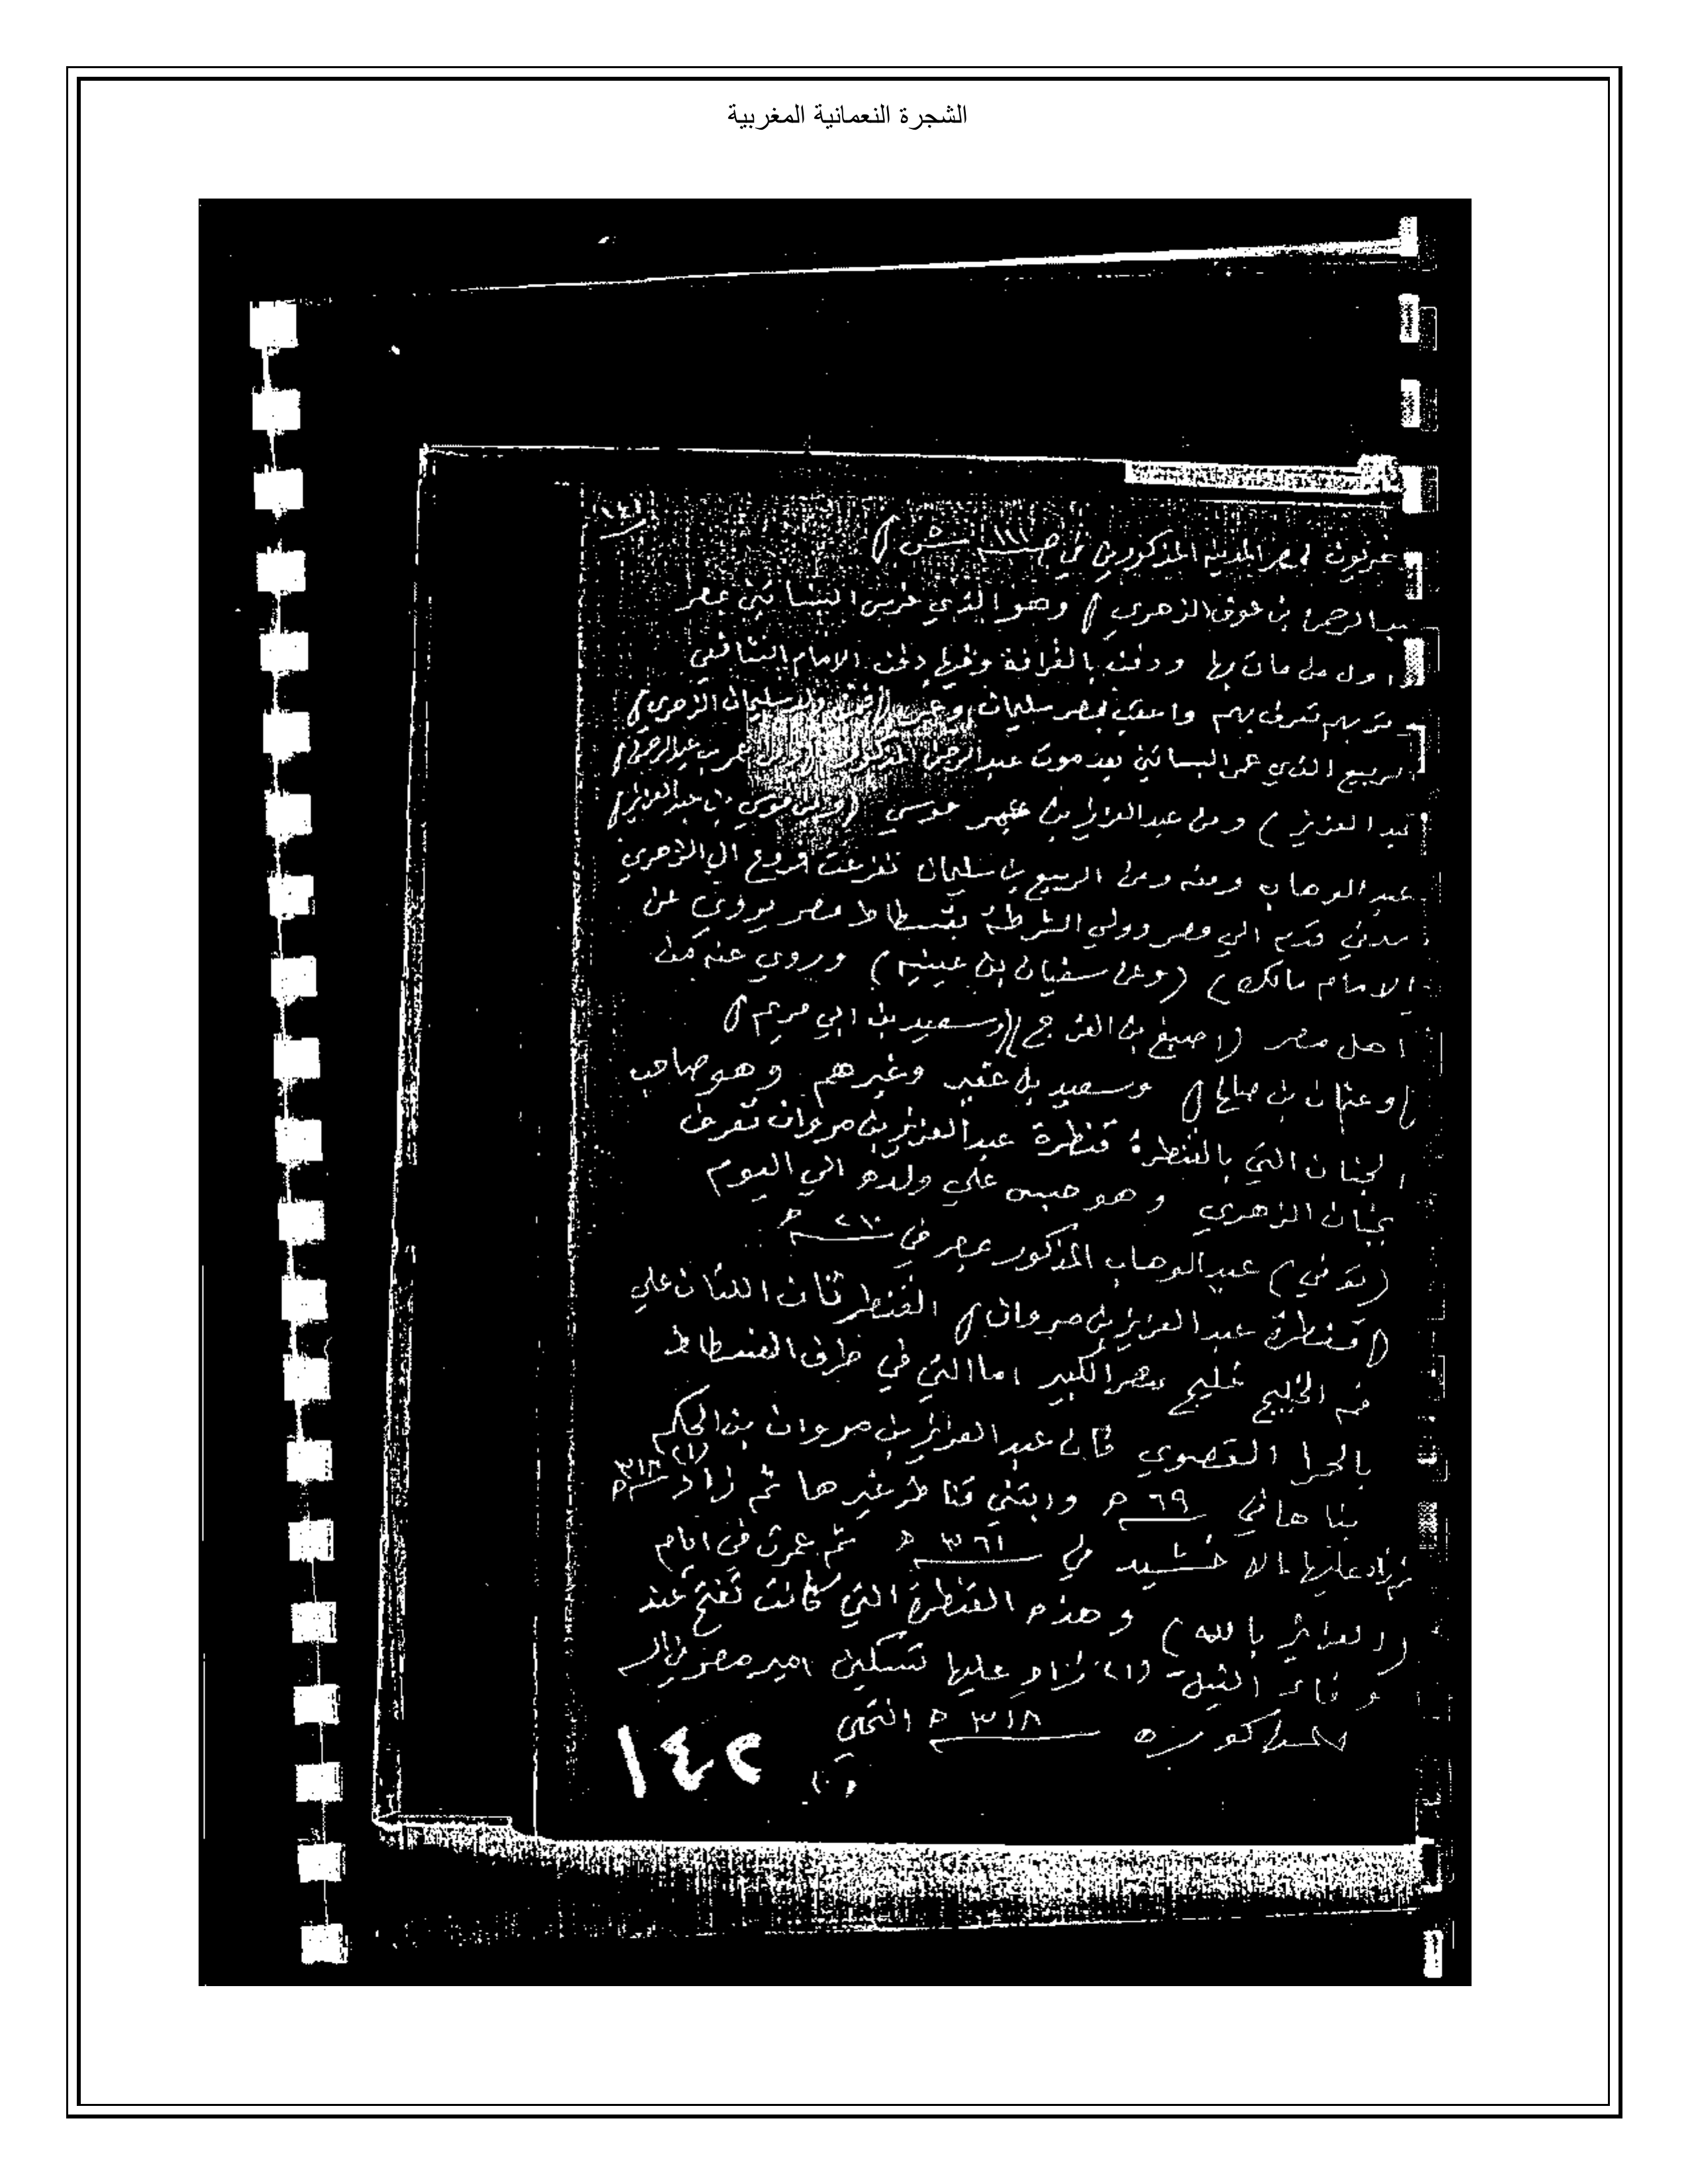 الشجرة النعمانية المغربية
١٤١
المذكورين في
بن عوف الزهري) وهو الذي غرس البساتين بمصر
اول من مات بها ودفنه بالقرافة وفيها دفن الامام الشافعي
تعرف بهم واعقب بمصر سليمان وعمر (فمن ولد سليمان الزهري)
الربيع الذي عمر البساتين بعد موت عبدالرحمن المذكور (ومن عمر بن عبدالرحمن)
عبد العزيز) ومن عبدالعزيز بن عمر موسي (ومن موسي بن عبدالعزيز)
عبد الوهاب ومنه ومن الربيع بن سليمان تفرعت فروع ال الزهري
مدني قدم الي مصر وولي الشرطة بفسطاط مصر يروي عن
الامام مالك) (وعن سفيان بن عيينه) وروي عنه من
اهل مصر (اصبغ بن الفرج) (وسعيد بن ابي مريم)
(وعثمان بن صالح) وسعيد بن عقير وغيرهم وهو صاحب
الجنان التي بالقنطرة قنطرة عبدالعزيز بن مروان تعرف
بجنان الزهري وهو حبس علي ولده الي اليوم
(توفي) عبدالوهاب المذكور بمصر في ٢١٠ ه
(قنطرة عبدالعزيز بن مروان) القنطرتان اللتان علي
فم الخليج خليج مصر الكبير اما التي في طرف الفسطاط
بالحمرا القصوي فان عبدالعزيز بن مروان بن الحكم
بناها في ٦٩ ه وابتني قناطر غيرها ثم زاد (١) ٣١٨ ه
ثم زاد عليها الاخشيد في ٣٦١ ه ثم عمرت في ايام
(العزيز بالله) وهذه القنطرة التي كانت تفتح عند
وفاء النيل (١) زاد عليها تسكين امير مصر
٣١٨ ه انتهي
١٤٢